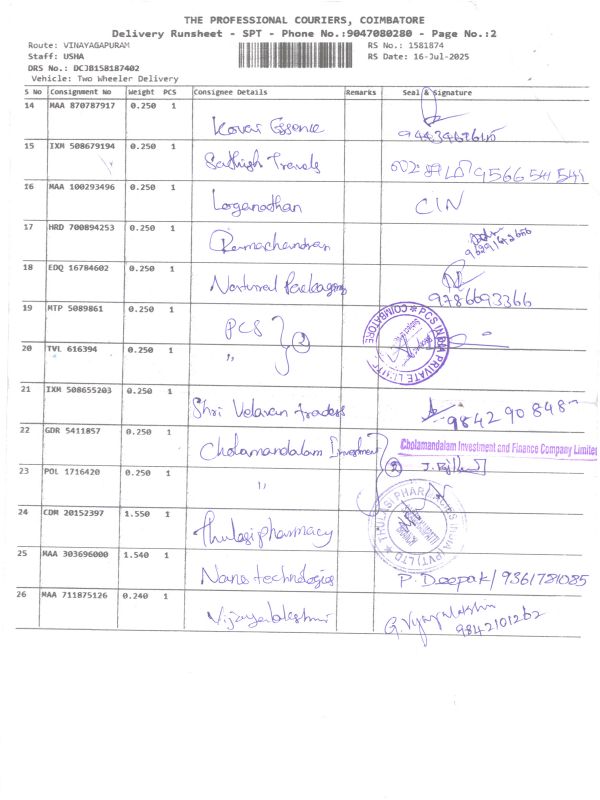 THE PROFESSIONAL COURIERS, COIMBATORE
Delivery Runsheet - SPT - Phone No.:9047080280 - Page No.:2
Route: VINAYAGAPURAM
RS No.: 1581874
Staff: USHA
RS Date: 16-Jul-2025
DRS No.: DCJB158187402
Vehicle: Two Wheeler Delivery
S No Consignment No Weight PCS Consignee Details Remarks Seal & Signature
14 MAA 870787917 0.250 1
Kovai Essence
15 IXM 508679194 0.250 1
Sathish Travels 9566541541
16 MAA 100293496 0.250 1
Loganathan CIN
17 HRD 700894253 0.250 1
Ramachandran
18 EDQ 16784602 0.250 1
National Packaging 9786693366
19 MTP 5089861 0.250 1
PCS 2
PCS INDIA PRIVATE LIMITED COIMBATORE
20 TVL 616394 0.250 1
"
21 IXM 508655203 0.250 1
Shri Velavan traders
22 GDR 5411857 0.250 1
Cholamandalam Investment
Cholamandalam Investment and Finance Company Limited
23 POL 1716420 0.250 1
" 2
24 CDM 20152397 1.550 1
Thulasi pharmacy
THULASI PHARMACIES INDIA (PVT) LTD
25 MAA 303696000 1.540 1
Nano technologies P. Deepak / 9361781085
26 MAA 711875126 0.240 1
Vijayalakshmi G. Vijayalakshmi
9842101262